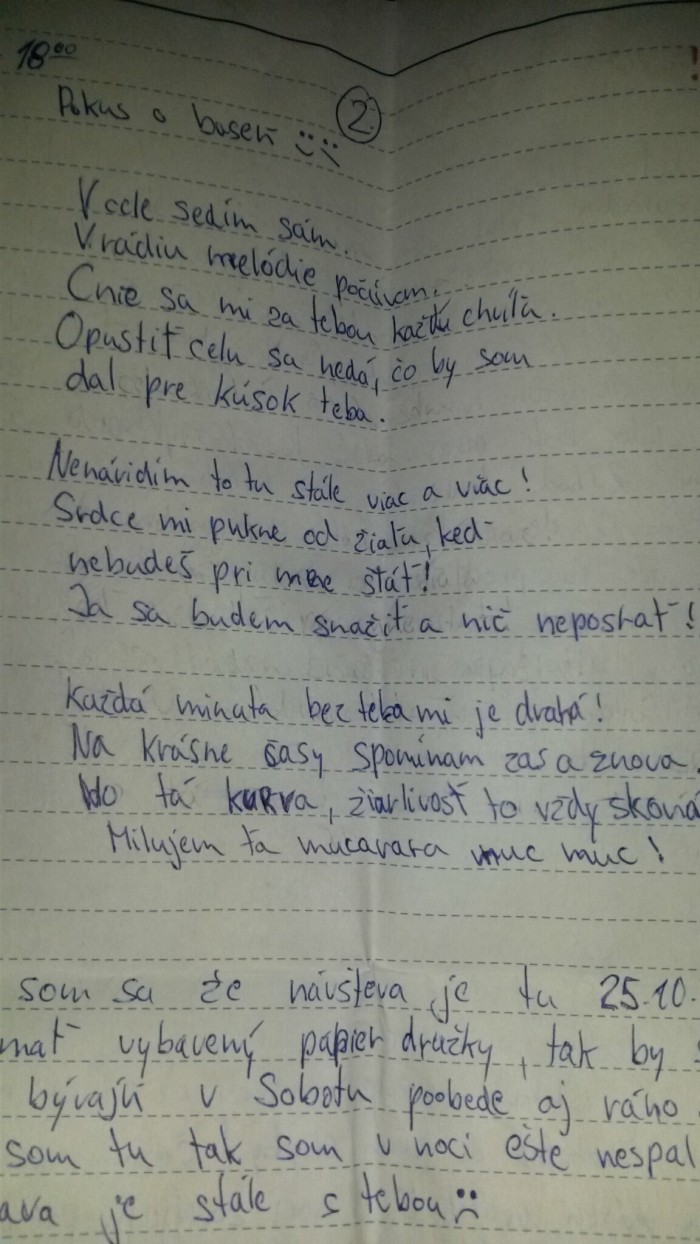 18⁰⁰ !
Pokus o báseň :) :( 2.
V cele sedím sám.
V rádiu melódie počúvam.
Cnie sa mi za tebou každú chvíľu.
Opustiť celu sa nedá, čo by som
dal pre kúsok teba.
Nenávidím to tu stále viac a viac!
Srdce mi pukne od žiaľu, keď
nebudeš pri mne stáť!
Ja sa budem snažiť a nič neposrať!
Každá minúta bez teba mi je drahá!
Na krásne časy spomínam zas a znova.
No tá kurva, žiarlivosť to vždy skoná
Milujem ťa mucavara muc muc!
som sa že návšteva je tu 25.10.
mať vybavený papier družky, tak by
bývajú v Sobotu poobede aj ráno
som tu tak som v noci ešte nespal
ava je stále s tebou :(